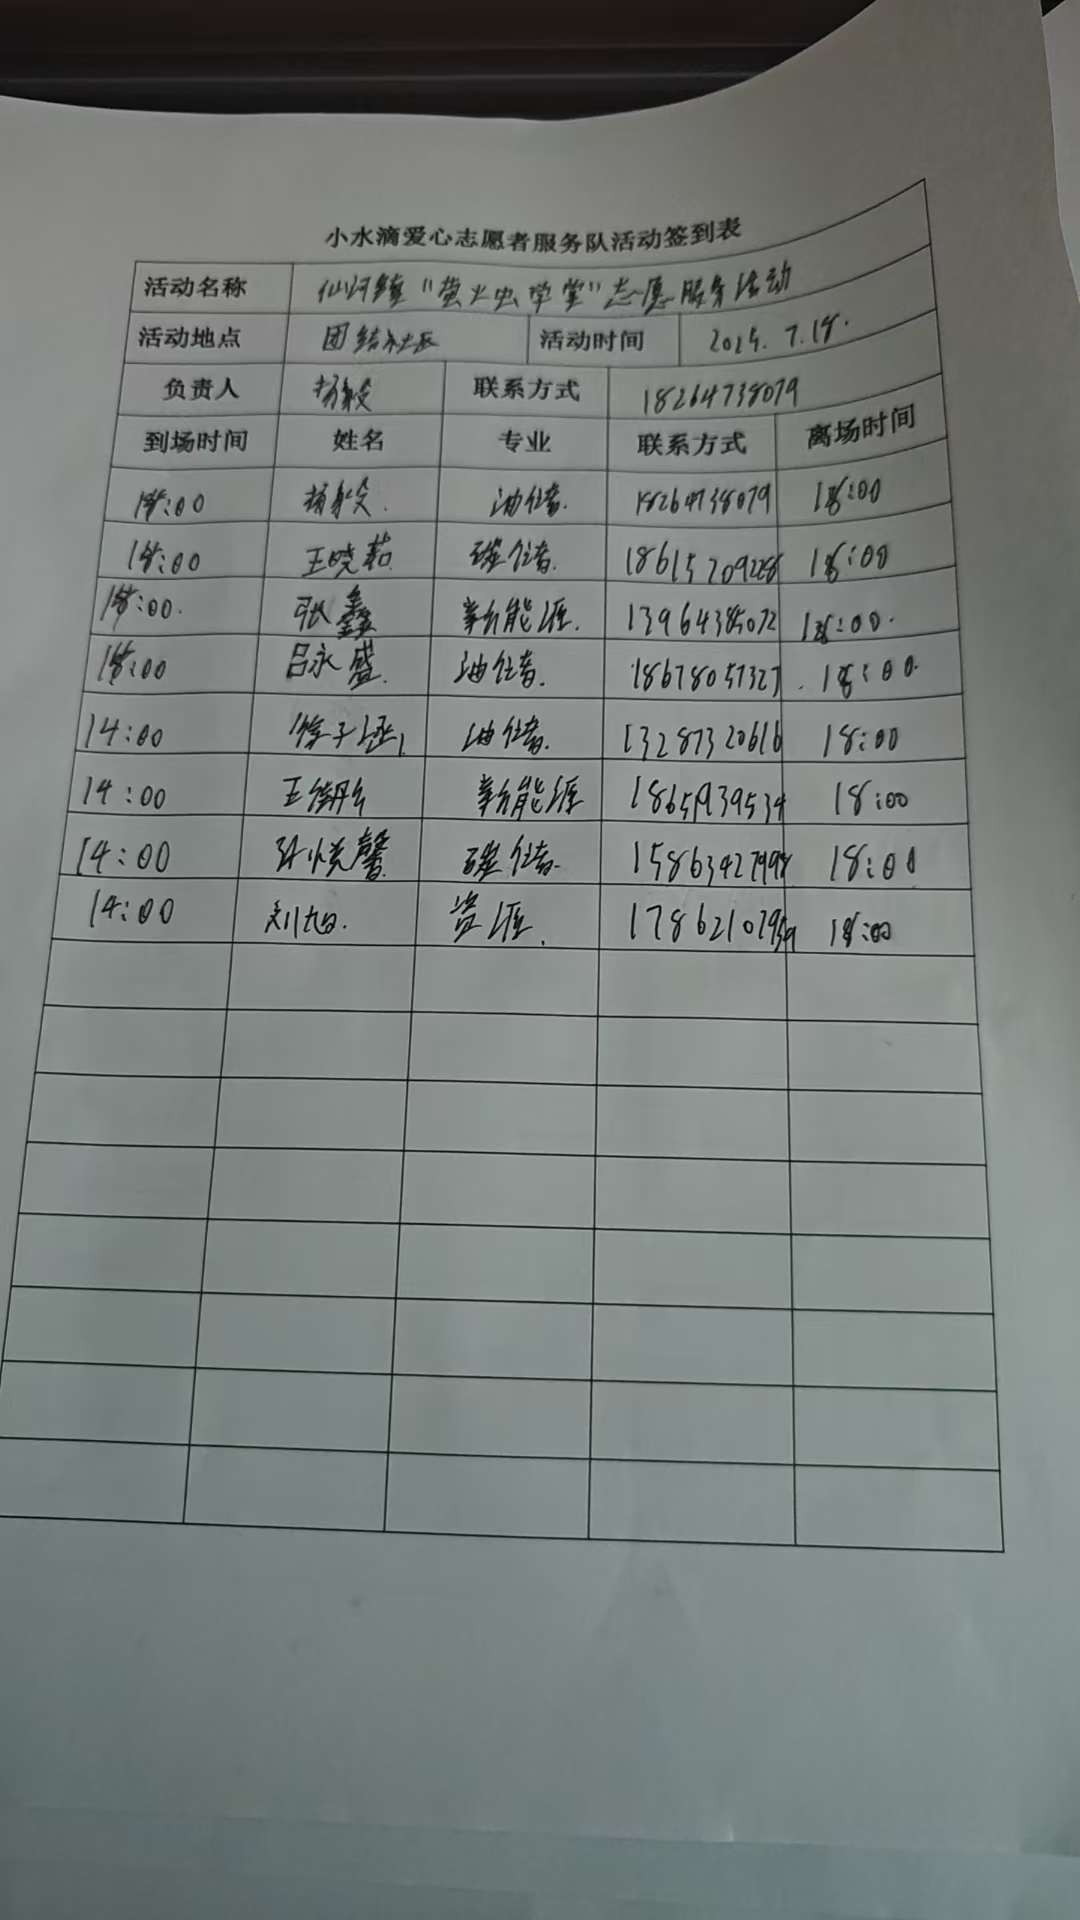 小水滴爱心志愿者服务队活动签到表
活动名称 仙河镇“萤火虫学堂”志愿服务活动
活动地点 团结社区 活动时间 2025.7.18.
负责人 杨毅 联系方式 18264738079
到场时间 姓名 专业 联系方式 离场时间
14:00 杨毅. 油储. 18264738079 18:00
14:00 王晓茹 碳储. 18615209228 18:00
14:00. 张鑫 新能源. 13964385072 18:00.
14:00 吕永盛. 油储. 18678057327 18:00.
14:00 徐子涵 油储. 13287320616 18:00
14:00 王 新能源 1865939534 18:00
14:00 孙悦馨 碳储. 15863427998 18:00
14:00 刘旭. 资源. 17862107959 18:00